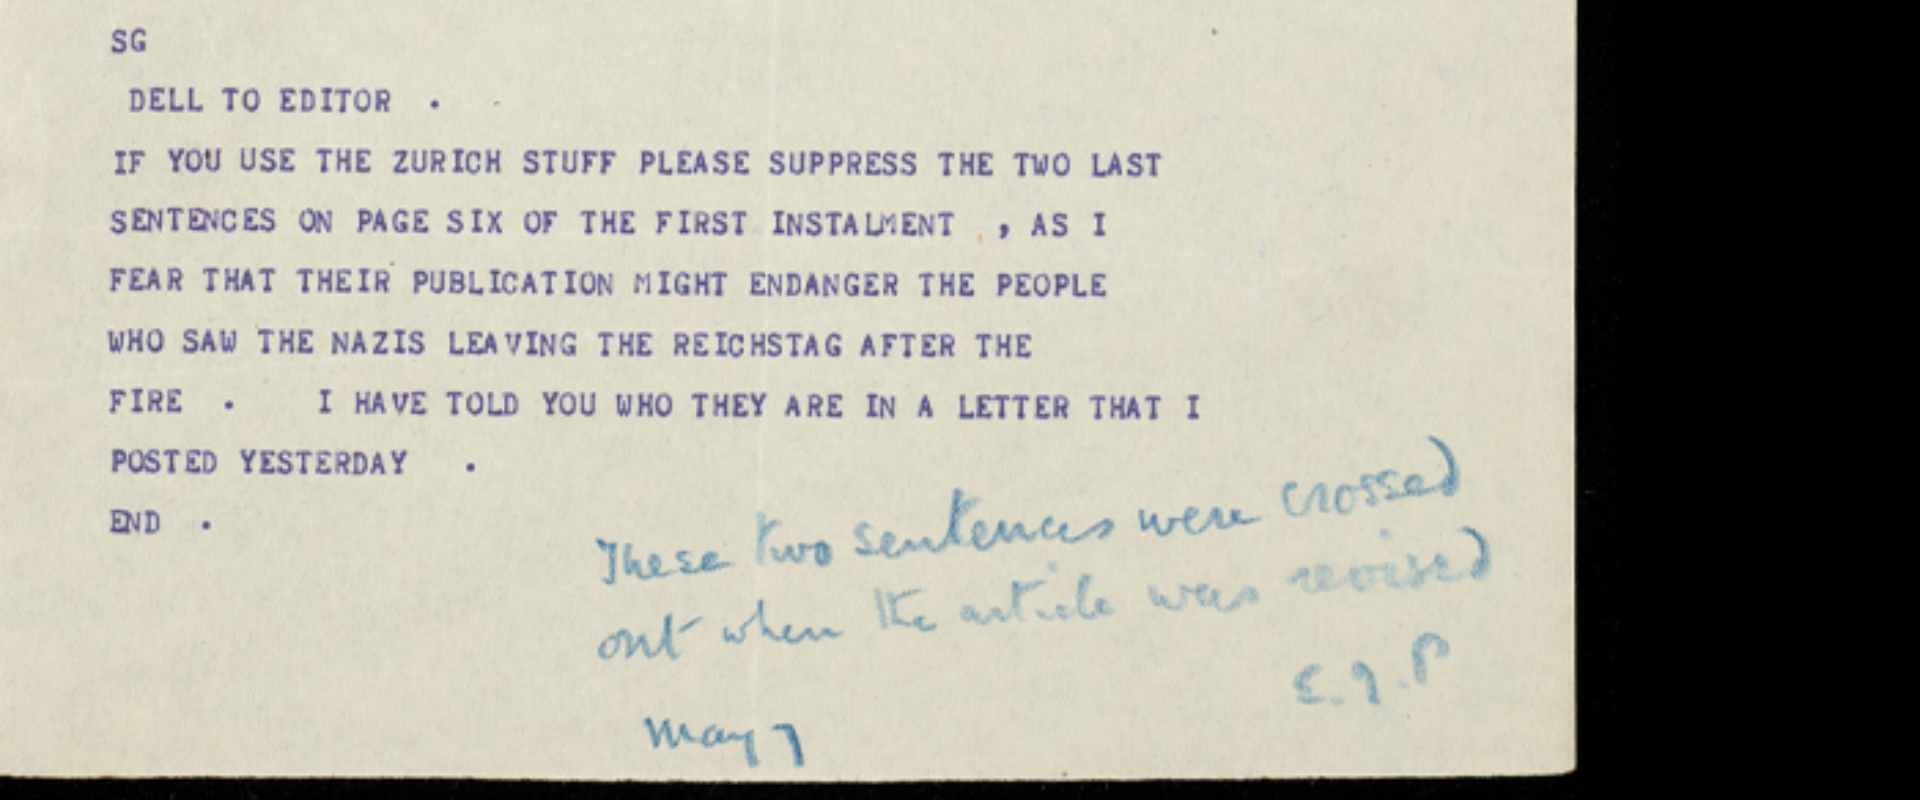 SG
DELL TO EDITOR .
IF YOU USE THE ZURICH STUFF PLEASE SUPPRESS THE TWO LAST
SENTENCES ON PAGE SIX OF THE FIRST INSTALMENT , AS I
FEAR THAT THEIR PUBLICATION MIGHT ENDANGER THE PEOPLE
WHO SAW THE NAZIS LEAVING THE REICHSTAG AFTER THE
FIRE . I HAVE TOLD YOU WHO THEY ARE IN A LETTER THAT I
POSTED YESTERDAY .
END .
These two sentences were crossed
out when the article was revised
E.J.P
May 7